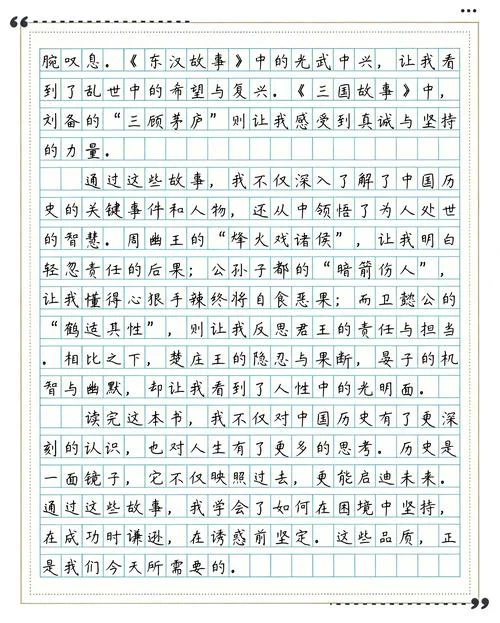 腕叹息．《东汉故事》中的光武中兴，让我看
到了乱世中的希望与复兴．《三国故事》中，
刘备的“三顾茅庐”则让我感受到真诚与坚持
的力量．
通过这些故事，我不仅深入了解了中国历
史的关键事件和人物，还从中领悟了为人处世
的智慧．周幽王的“烽火戏诸侯”，让我明白
轻忽责任的后果；公孙子都的“暗箭伤人”，
让我懂得心狠手辣终将自食恶果；而卫懿公的
“鹤适其性”，则让我反思君王的责任与担当
．相比之下，楚庄王的隐忍与果断，晏子的机
智与幽默，却让我看到了人性中的光明面．
读完这本书，我不仅对中国历史有了更深
刻的认识，也对人生有了更多的思考．历史是
一面镜子，它不仅映照过去，更能启迪未来．
通过这些故事，我学会了如何在困境中坚持，
在成功时谦逊，在诱惑前坚定．这些品质，正
是我们今天所需要的．